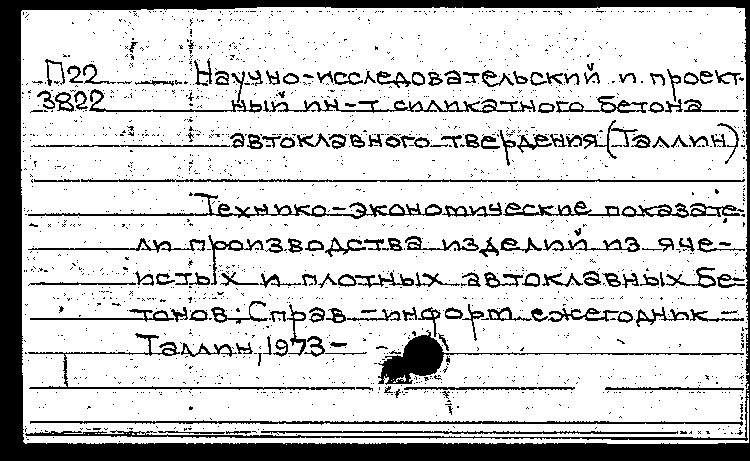 П22 Научно-исследовательский и проект-
3822 ный ин-т силикатного бетона
автоклавного твердения (Таллин)
Технико-экономические показате-
ли производства изделий из яче-
истых и плотных автоклавных бе-
тонов: Справ.-информ. ежегодник.-
Таллин, 1973-